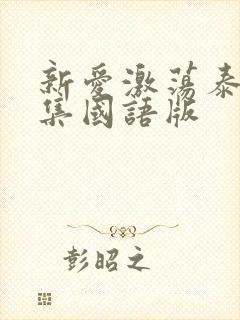 新愛激蕩泰
集國語版
彭昭之